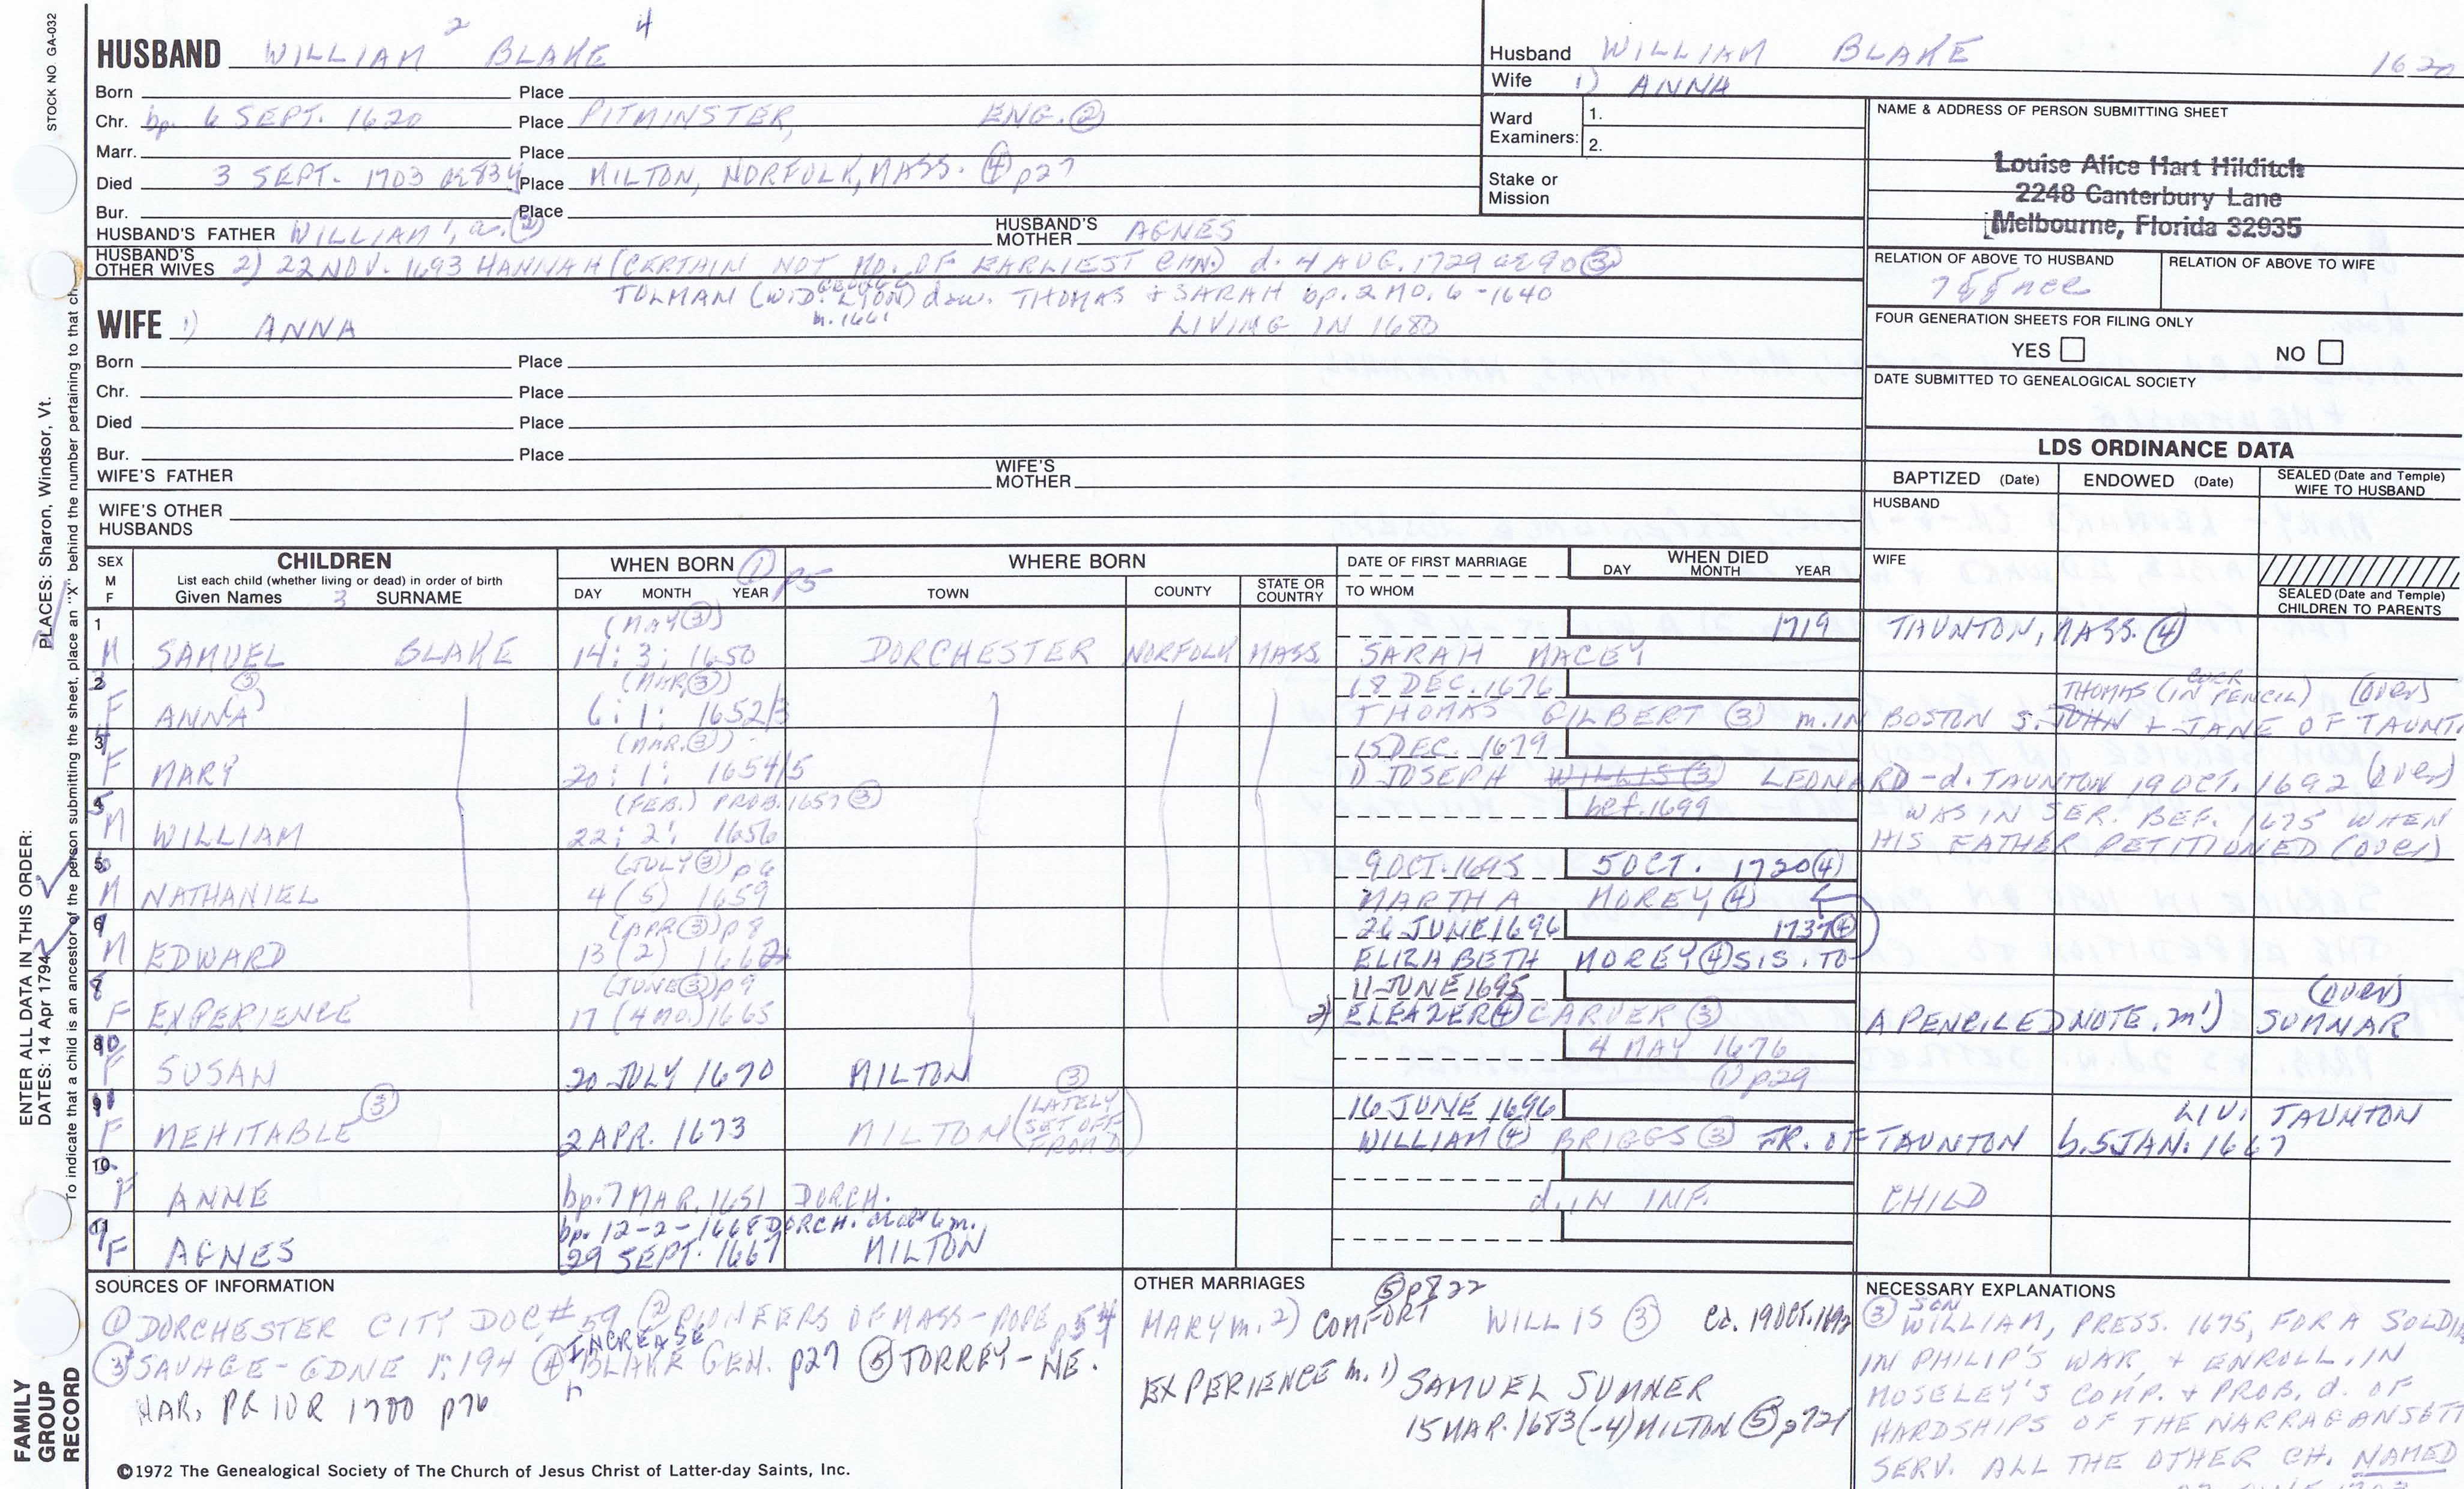 STOCK NO. GA-032
HUSBAND WILLIAM 2 BLAKE 4
Born Place
Chr. bp. 6 SEPT. 1620 Place PITMINSTER, ENG. ②
Marr. Place
Died 3 SEPT. 1703 ae 83y Place MILTON, NORFOLK, MASS. ④ p27
Bur. Place
HUSBAND'S FATHER WILLIAM 1, ② HUSBAND'S MOTHER AGNES
HUSBAND'S OTHER WIVES 2) 22 NOV. 1693 HANNAH (CERTAIN NOT MO. OF EARLIEST CHN.) d. 4 AUG. 1729 ae 90 ③
TOLMAN (WID. GEORGE LYON) dau. THOMAS + SARAH bp. 2 MO. 6 - 1640
m. 1661
WIFE 1) ANNA LIVING IN 1680
Born Place
Chr. Place
Died Place
Bur. Place
WIFE'S FATHER WIFE'S MOTHER
WIFE'S OTHER HUSBANDS
Husband WILLIAM BLAKE 1620
Wife 1) ANNA
Ward Examiners: 1.
2.
Stake or Mission
NAME & ADDRESS OF PERSON SUBMITTING SHEET
Louise Alice Hart Hilditch
2248 Canterbury Lane
Melbourne, Florida 32935
RELATION OF ABOVE TO HUSBAND RELATION OF ABOVE TO WIFE
FOUR GENERATION SHEETS FOR FILING ONLY
YES NO
DATE SUBMITTED TO GENEALOGICAL SOCIETY
LDS ORDINANCE DATA
BAPTIZED (Date) ENDOWED (Date) SEALED (Date and Temple) WIFE TO HUSBAND
HUSBAND
WIFE
SEALED (Date and Temple) CHILDREN TO PARENTS
SEX M F
CHILDREN
List each child (whether living or dead) in order of birth
Given Names 3 SURNAME
WHEN BORN ① p5
DAY MONTH YEAR
WHERE BORN
TOWN COUNTY STATE OR COUNTRY
DATE OF FIRST MARRIAGE
TO WHOM
WHEN DIED
DAY MONTH YEAR
1 (MAY ③) 1719 TAUNTON, MASS. ④
M SAMUEL BLAKE 14: 3: 1650 DORCHESTER NORFOLK MASS. SARAH MACEY
2 ③ (MAR ③) 18 DEC. 1676 THOMAS (IN PENCIL) (over)
F ANNA 6: 1: 1652/3 THOMAS GILBERT ③ m. IN BOSTON s. JOHN + JANE OF TAUNT.
3 (MAR. ③) 15 DEC. 1679
F MARY 20: 1: 1654/5 1) JOSEPH WILLIS ③ LEONARD - d. TAUNTON 19 OCT. 1692 (over)
4 (FEB.) PROB. 1657 ③ bef. 1699 WAS IN SER. BEF. 1675 WHEN
M WILLIAM 22: 2: 1656 HIS FATHER PETITIONED (over)
5 (JULY ③) p6 9 OCT. 1695 5 OCT. 1720 ④
M NATHANIEL 4 (5) 1659 MARTHA MOREY ④
6 (APR ③) p8 26 JUNE 1696 1737 ④
M EDWARD 13 (2) 1662 ELIZABETH MOREY ④ SIS. TO
7 (JUNE ③) p9 11 JUNE 1695 (over)
F EXPERIENCE 17 (4 MO.) 1665 2) ELEAZER ④ CARVER ③ A PENCILED NOTE. m 1) SUMNAR
8 4 MAY 1676
F SUSAN 20 JULY 1670 MILTON ① p29
9 ③ 16 JUNE 1696 LIV. TAUNTON
F MEHITABLE 2 APR. 1673 MILTON ③ (LATELY SET OFF FROM D.) WILLIAM ④ BRIGGS ③ JR. OF TAUNTON b. 5 JAN. 1667
10
F ANNE bp. 7 MAR. 1651 DORCH. d. IN INF. CHILD
11 bp. 12-2-1668 DORCH.
F AGNES 29 SEPT. 1667 MILTON
SOURCES OF INFORMATION
① DORCHESTER CITY DOC # 59 ② PIONEERS OF MASS - POPE p54
③ SAVAGE - GDNE 1:194 ④ INCREASE BLAKE GEN. p27 ⑤ TORREY - NE.
MAR. PRIOR 1700 p76
OTHER MARRIAGES
⑤ p822
MARY m. 2) COMFORT WILLIS ③ Ca. 19 OCT. 1692
EXPERIENCE m. 1) SAMUEL SUMNER
15 MAR. 1683(-4) MILTON ⑤ p721
NECESSARY EXPLANATIONS
③ SON WILLIAM, PRESS. 1675, FOR A SOLDI
IN PHILIP'S WAR, + ENROLL. IN
MOSELEY'S COMP. + PROB. d. OF
HARDSHIPS OF THE NARRAGANSETT
SERV. ALL THE OTHER CH. NAMED
©1972 The Genealogical Society of The Church of Jesus Christ of Latter-day Saints, Inc.
FAMILY GROUP RECORD
ENTER ALL DATA IN THIS ORDER:
DATES: 14 Apr 1794
PLACES: Sharon, Windsor, Vt.
To indicate that a child is an ancestor of the person submitting the sheet, place an "X" behind the number pertaining to that ch